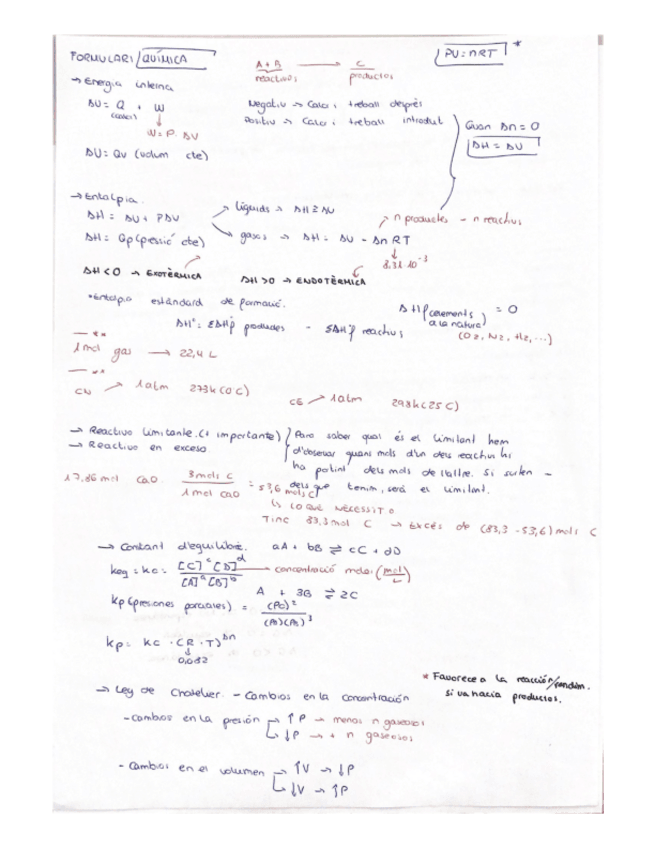 FORMULARI QUÍMICA
A + B → C
reactivos productos
PV = nRT *
→ Energia interna
ΔU = Q + W
(calor)
W = P · ΔV
Negatiu → Calor i treball després
Positiu → Calor i treball introduït
Quan Δn = 0
ΔH = ΔU
ΔU = Qv (volum cte)
→ Entalpia.
ΔH = ΔU + PΔV
→ líquids → ΔH ≅ ΔU
ΔH = Qp (pressió cte)
→ gasos → ΔH = ΔU - Δn RT
n productes - n reactius
8,31·10⁻³
ΔH < 0 → EXOTÈRMICA
ΔH > 0 → ENDOTÈRMICA
* Entalpia estàndard de formació.
ΔHº = ΣΔHºf productes - ΣΔHºf reactius
ΔHf (elements a la natura) = 0
(O2, N2, H2, ...)
1 mol gas → 22,4 L
CN → 1 atm 273k (0 C)
CE → 1 atm 298k (25 C)
→ Reactivo limitante. (+ importante)
→ Reactivo en exceso
Para saber qual és el limitant hem
d'observar quans mols d'un dels reactius hi
ha partint dels mols de l'altre. Si surten -
dels que tenim, serà el limitant.
17,86 mol CaO · 3 mols C / 1 mol CaO = 53,6 mols C
↳ LO QUE NECESSITO
TINC 83,3 mol C → EXCÉS DE (83,3 - 53,6) mols C
→ Constant d'equilibre. aA + bB ⇌ cC + dD
keq = kc = [C]ᶜ[D]ᵈ / [A]ᵃ[B]ᵇ → concentració molar (mol/L)
A + 3B ⇌ 2C
kp (presiones parciales) = (Pc)² / (Pa)(Pb)³
kp = kc · (R · T)^Δn
0,082
→ Ley de Chatelier. - Cambios en la concentración
* Favorece a la reacción/rendim.
si va hacia productos.
- Cambios en la presión → ↑P → menos n gaseosos
↳ ↓P → + n gaseosos
- Cambios en el volumen → ↑V → ↓P
↳ ↓V → ↑P